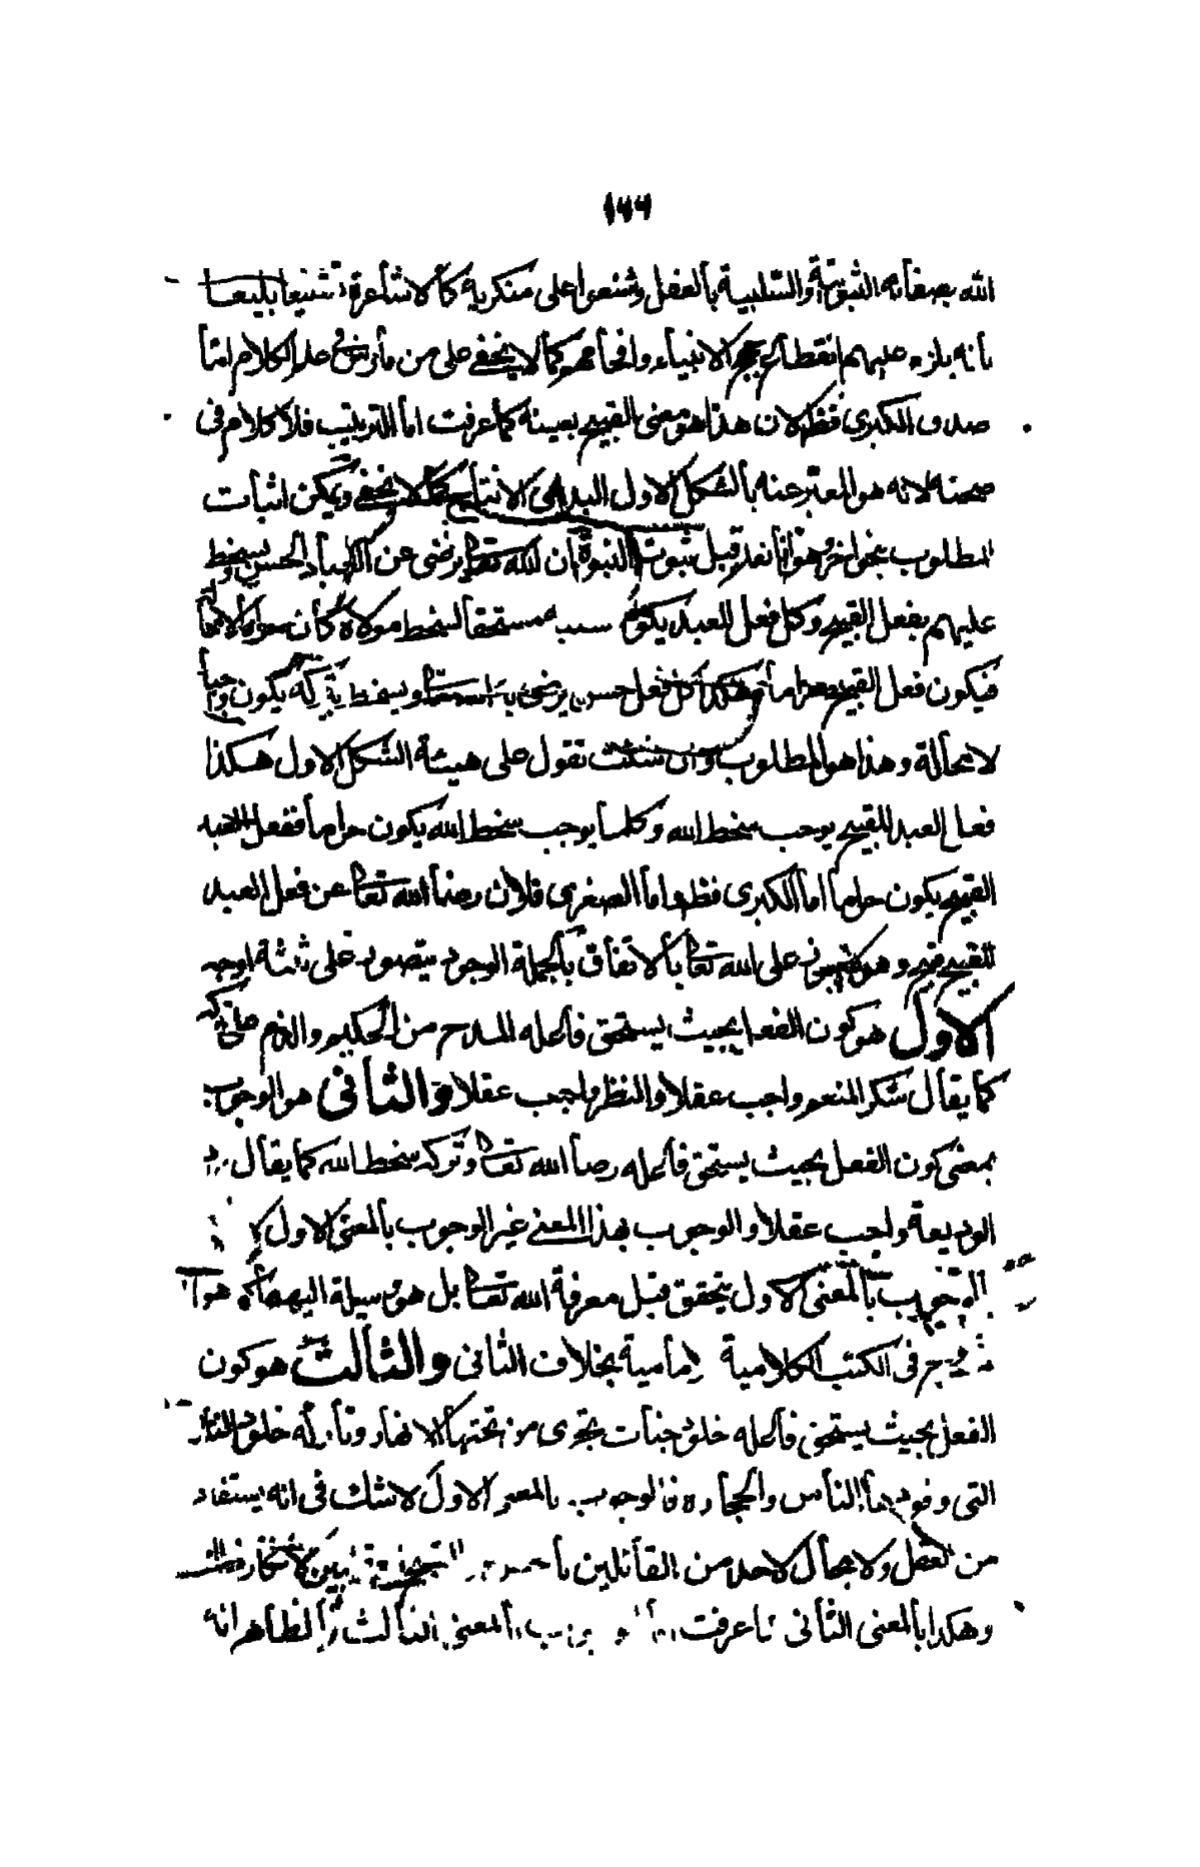 ١٦٦
الله بصفاته الثبوتية والسلبية بالعقل وشنعوا على منكريه كالاشاعرة تشنيعا بليغا
بانه يلزم عليهم انقطاع حجج الانبياء وافحامهم كما لا يخفى على من مارس علم الكلام اما
صدق الكبرى فظ لان هذا هو معنى القبيح بعينه كما عرفت اما الترتيب فلا كلام فى
صحته لانه هو المعتبر عنه بالشكل الاول البديهى الانتاج كما لا يخفى ويمكن اثبات
المطلوب بنحو اخر وهو انا نعلم قبل ثبوت النبوة ان لله تعا يرضى عن العباد بالحسن ويسخط
عليهم بفعل القبيح وكل فعل للعبد يكون سبب مستحقا لسخط مولاه كان حراما
فيكون فعل القبيح حراما وهكذا كل فعل حسن يرضى به الله تعا ويسخط بتركه يكون واجبا
لا محالة وهذا هو المطلوب وان شئت تقول على هيئة الشكل الاول هكذا
فعل العبد للقبيح يوجب سخط الله وكلما يوجب سخط الله يكون حراما ففعل العبد
القبيح يكون حراما اما الكبرى فظ واما الصغرى فلان رضا الله تعا عن فعل العبد
للقبيح قبيح وهو على الله تعا بالاتفاق بالجملة الوجوب يتصور على ثلثة اوجه
الاول هو كون الفعل بحيث يستحق فاعله المدح من الحكيم والذم على تركه
كما يقال شكر المنعم واجب عقلا والنظر واجب عقلا والثانى هو الوجوب
بمعنى كون الفعل بحيث يستحق فاعله رضا الله تعا وتركه سخط الله كما يقال رد
الوديعة واجب عقلا والوجوب بهذا المعنى غير الوجوب بالمعنى الاول
الوجوب بالمعنى الاول يتحقق قبل معرفة الله تعا بل هو وسيلة اليها كما هو
فى الكتب الكلامية امامية بخلاف الثانى والثالث هو كون
الفعل بحيث يستحق فاعله خلود جنات تجرى من تحتها الانهار وتاركه خلود النار
التى وقودها الناس والحجارة فالوجوب بالمعنى الاول لا شك فى انه يستفاد
من العقل ولا مجال لاحد من القائلين
وهكذا بالمعنى الثانى عرفت المعنى الثالث فالظاهر انه